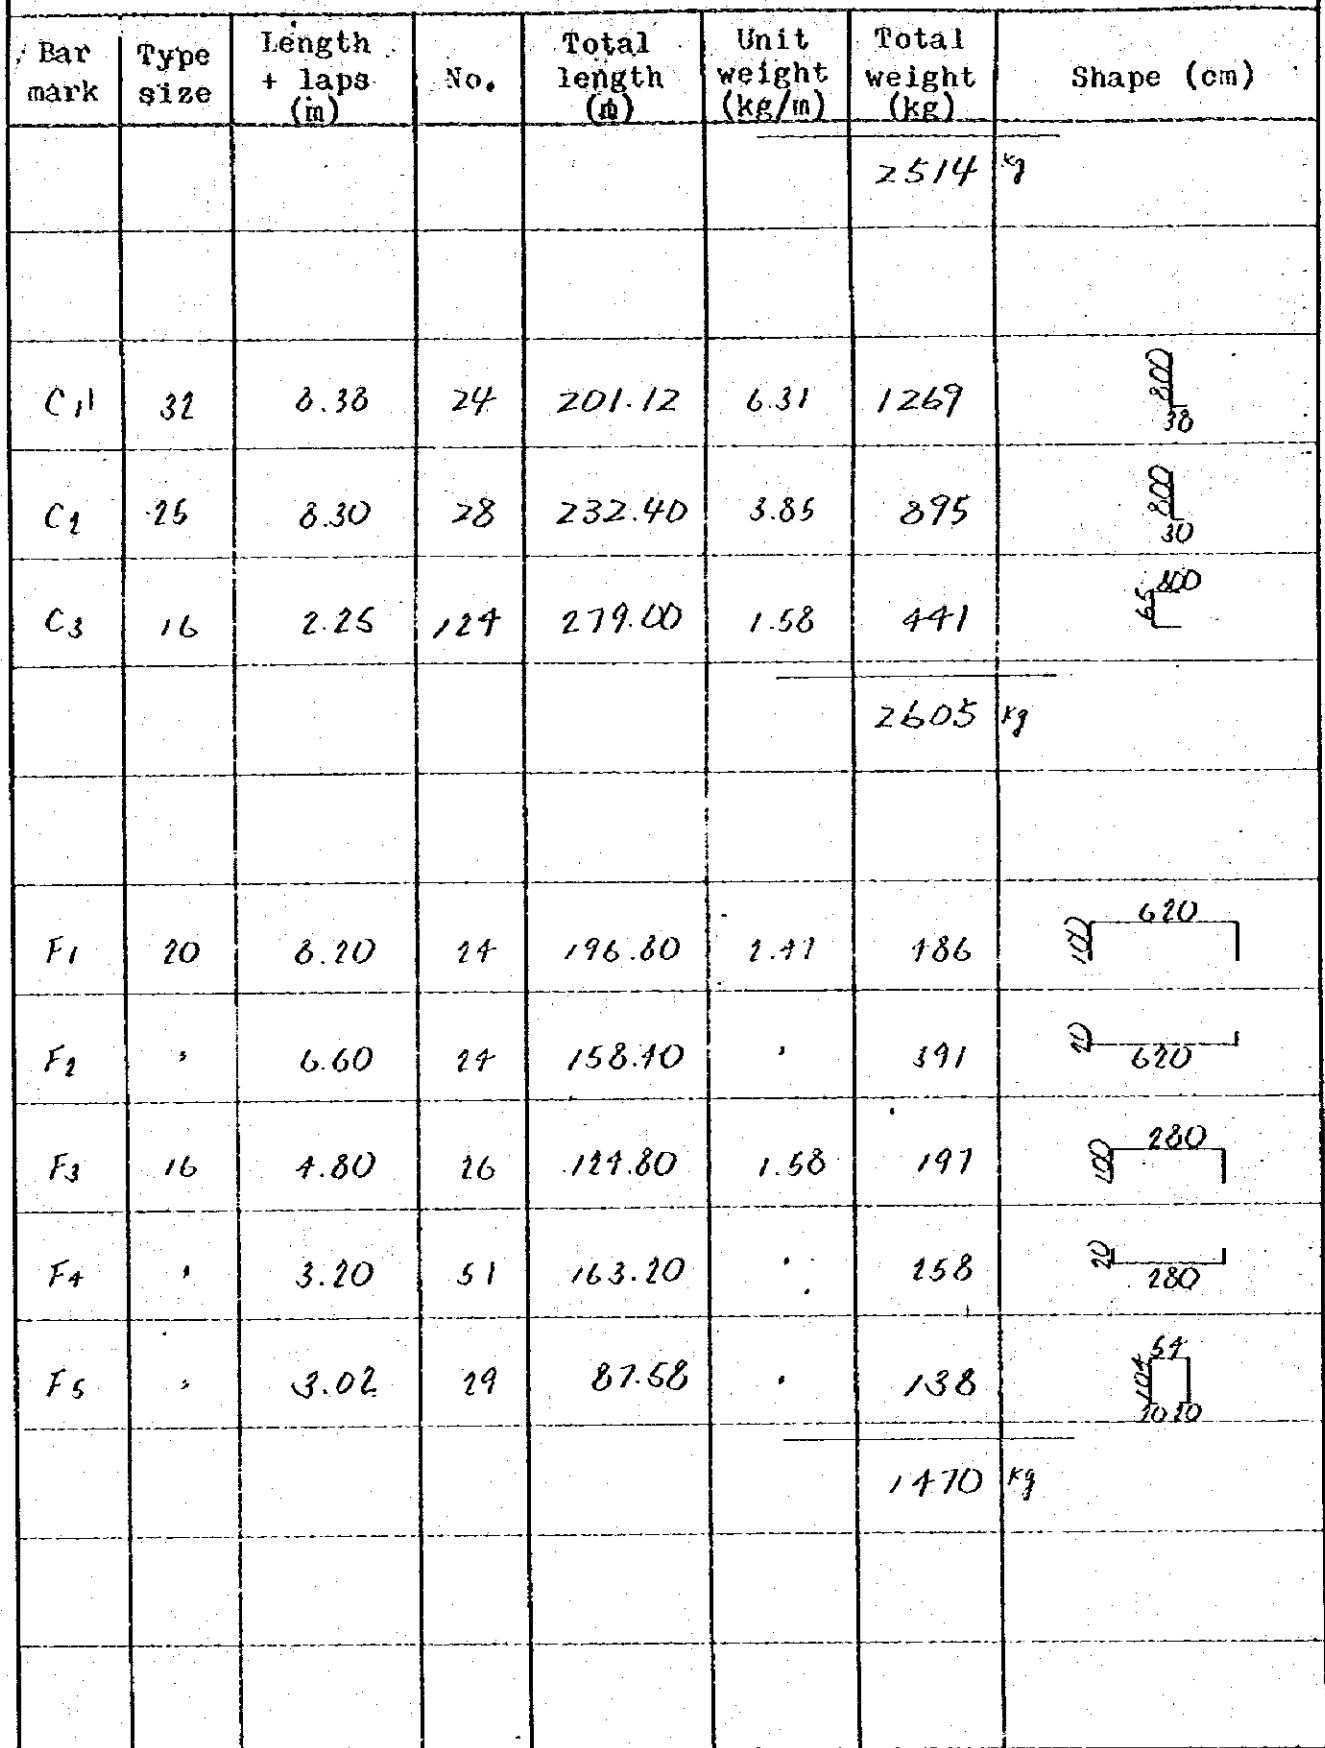 Bar mark Type size Length + laps (m) No. Total length (m) Unit weight (kg/m) Total weight (kg) Shape (cm)
2514 kg
C1 32 8.38 24 201.12 6.31 1269 800 38
C2 25 8.30 28 232.40 3.85 895 800 30
C3 16 2.25 124 279.00 1.58 441 65 100
2605 kg
F1 20 8.20 24 196.80 2.47 486 100 620
F2 " 6.60 24 158.40 " 391 20 620
F3 16 4.80 26 124.80 1.58 197 100 280
F4 " 3.20 51 163.20 " 258 20 280
F5 " 3.02 29 87.58 " 138 104 54 10 10
1470 kg